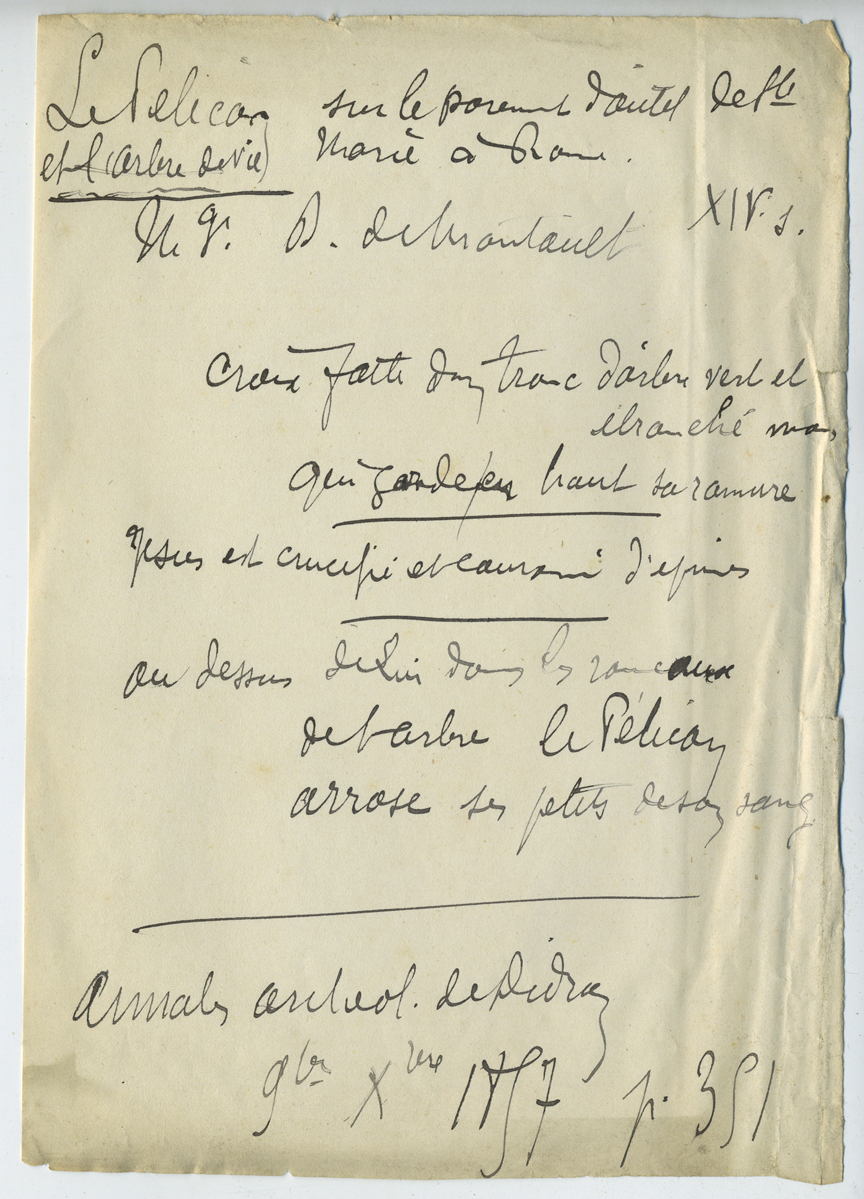 Le Pélican sur le parement d'autel de Ste
et (l'arbre de vie) Marie à Rome.
XIV. s.
Mgr. B. de Montault
croix faite d'un tronc d'arbre vert et
ébranché mais
qui garde en haut sa ramure
Jesus est crucifié et couronné d'épines
au dessus de lui dans les rameaux
de l'arbre le Pélican
arrose ses petits de son sang
Annales archeol. de Didron
9bre Xbre 1857 p. 351